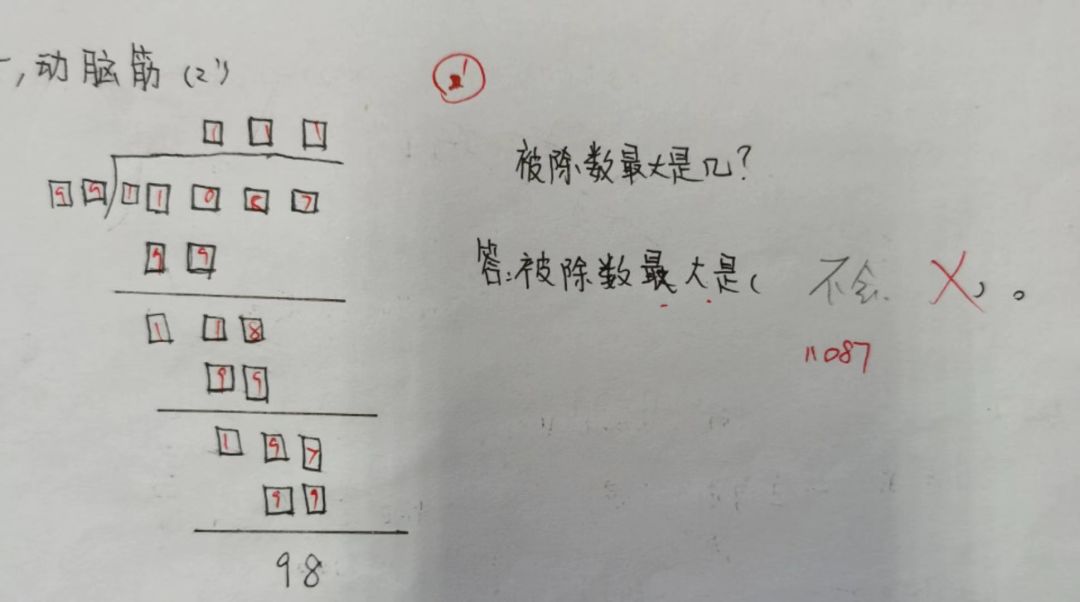 一,动脑筋(2')
2'
1 1 1
9 9 1 1 0 8 7
9 9
1 1 8
9 9
1 9 7
9 9
98
被除数最大是几?
答:被除数最大是( 不会 X )。
11087